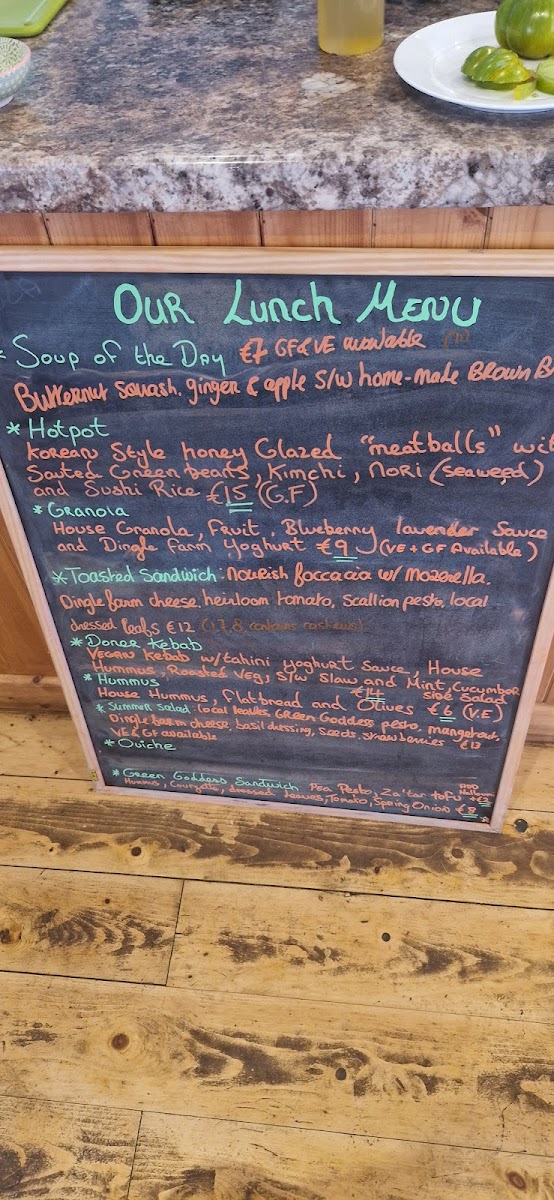 OUR Lunch MENU
* Soup of the Day €7 GF & VE available
Butternut squash, ginger & apple s/w home-made BROWN B
* Hotpot
Korean Style honey Glazed "meatballs" wit
Sauted Green beans, Kimchi, Nori (seaweed)
and Sushi Rice €15 (G.F)
* Granola
House Granola, Fruit, Blueberry lavender Sauce
and Dingle Farm Yoghurt €9 (VE + GF Available)
* Toasted Sandwich: Nourish foccacia w/ mozerella.
Dingle farm cheese, heirloom tomato, scallion pesto, local
dressed leafs €12 (1,7,8, contains cashews)
* Doner Kebab
VEGAN Kebab w/tahini yoghurt Sauce, House
Hummus, Roasted Veg, s/w Slaw and Mint, Cucumber
€14 side salad
* Hummus
House Hummus, flatbread and Olives €6 (V.E)
* Summer Salad: local leaves GREEN Goddess pesto, mangetout,
Dingle farm cheese, basil dressing, seeds, strawberries €13
VE & GF available
* Quiche
* Green Goddess Sandwich Pea Pesto, Za'tar tofu ADD Halloumi +€2
Humus, Courgette, dressed leaves, Tomato, Spring Onion €8